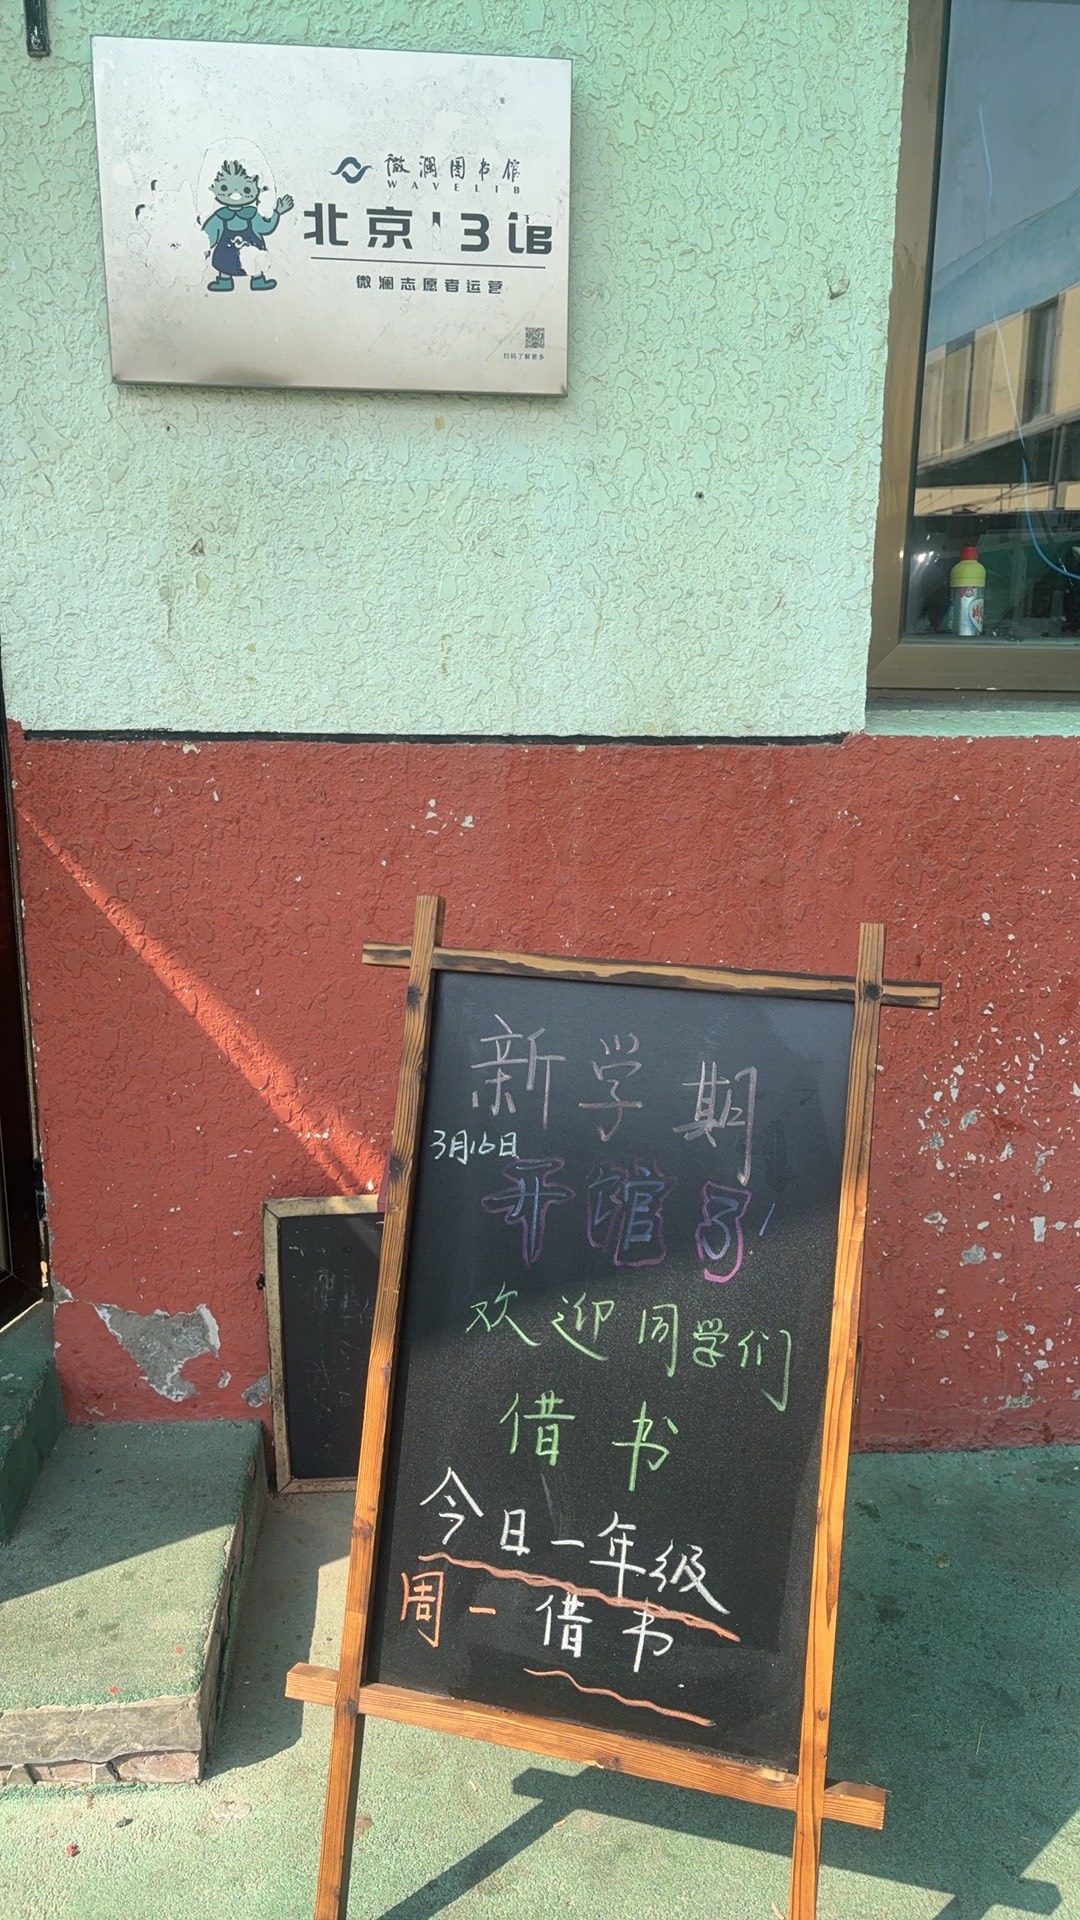 微澜图书馆
WAVELIB
北京13馆
微澜志愿者运营
扫码了解更多
新学期
3月16日
开馆了!
欢迎同学们
借书
今日一年级
周一 借书